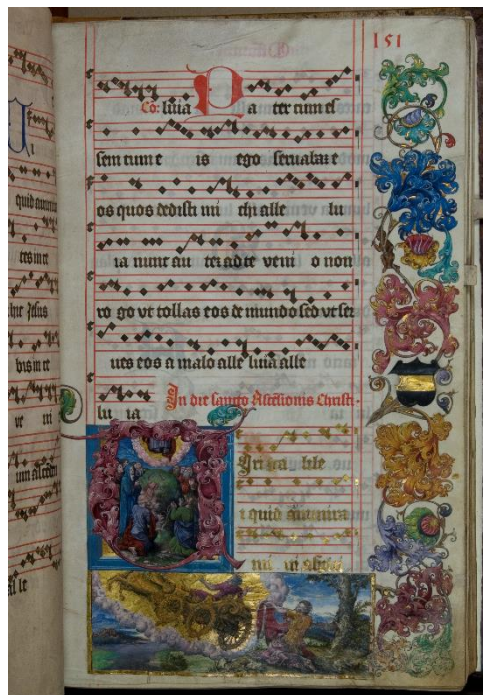 151
Co: luia Pa ter cum es
sem cum e is ego seruabā e
os quos dedisti mi chi alle lu
ia nunc au tē ad te veni o non
ro go vt tollas eos de mundo sed vt ser
ues eos a malo alle luia alle
lu ia In die sancto Ascēsionis Christi.
Viri ga lile
i quid
quid
tes in ce
Jesus
vbis in ce
ve ni
um
al le